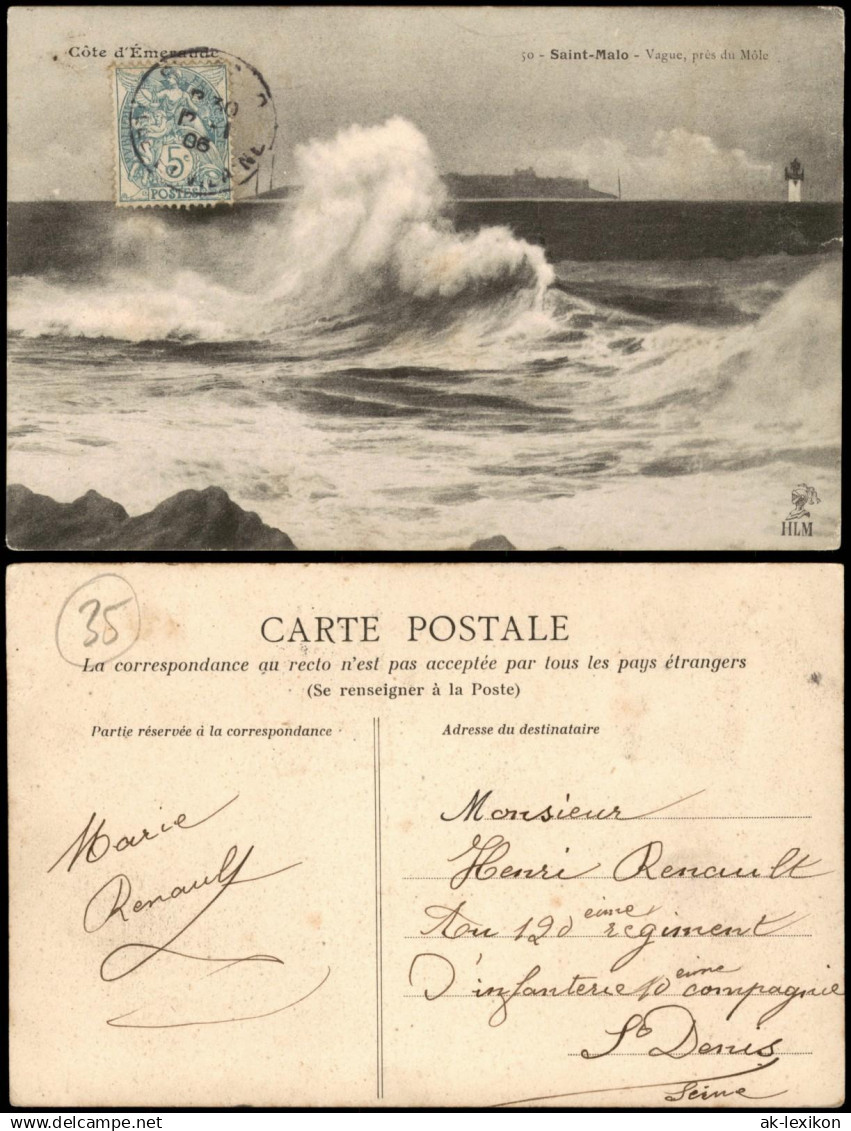 Côte d'Émeraude
50 - Saint-Malo - Vague, près du Môle
30
06
5c
POSTES
HLM
35
CARTE POSTALE
La correspondance au recto n'est pas acceptée par tous les pays étrangers
(Se renseigner à la Poste)
Partie réservée à la correspondance
Adresse du destinataire
Marie
Renault
Monsieur
Henri Renault
Au 120eime regiment
D'infanterie 10eime compagnie
St Denis
Seine
ak-lexikon